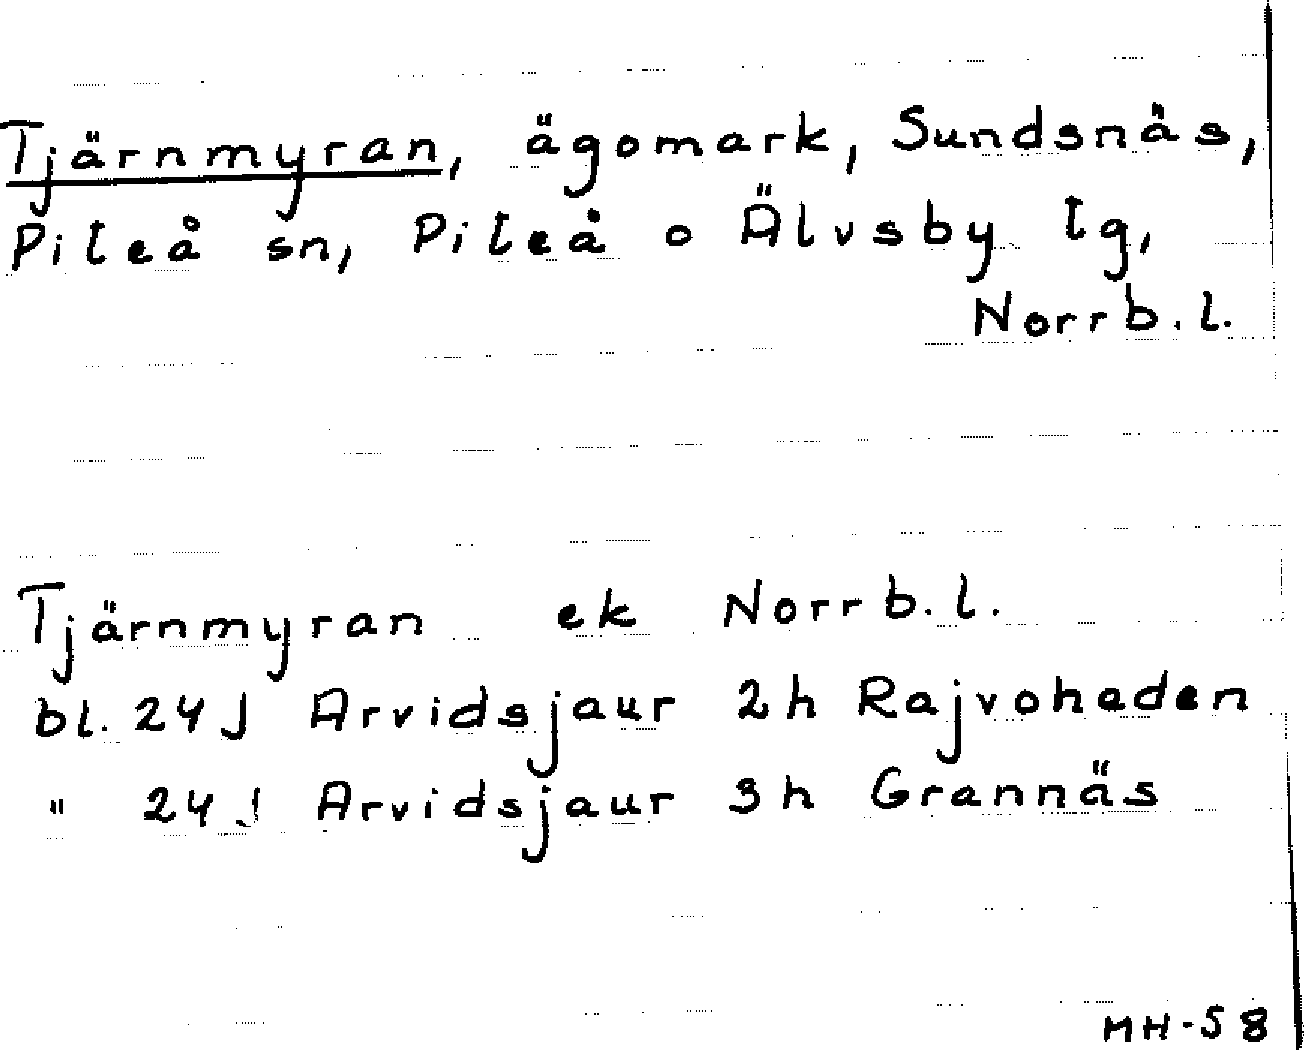 Tjärnmyran, ägomark, Sundsnäs,
Piteå sn, Piteå o Älvsby tg,
Norrb. l.
Tjärnmyran ek Norrb. l.
bl. 24J Arvidsjaur 2h Rajvoheden
" 24J Arvidsjaur 3h Grannäs
MH-58